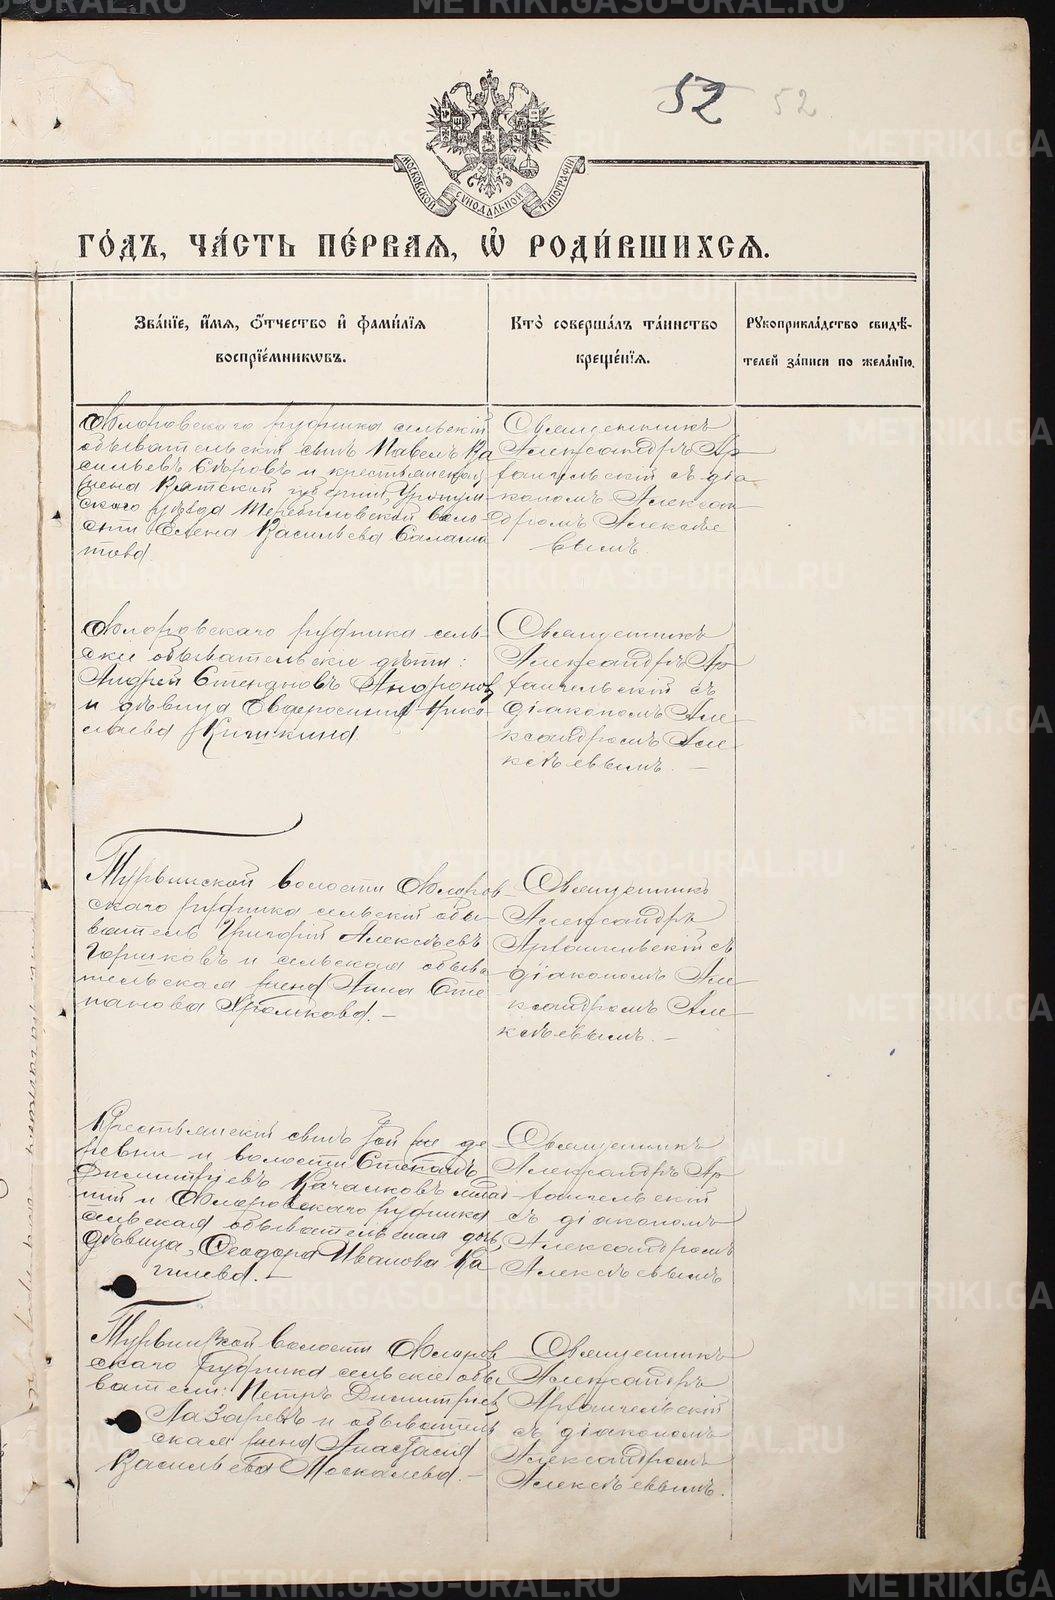 52 52
МОСКОВСКОЙ СѴНОДАЛЬНОЙ ТИПОГРАФІИ
ГО́ДЪ, ЧА́СТЬ ПЕ́РВАЯ, Ѽ РОДИ́ВШИХСЯ.
Зва́нїе, и҆́мя, ѻ҆́тчество и҆ фами́лїя
воспрїе́мникѡвъ.
Кто̀ соверша́лъ та́инство
креще́нїя.
Рꙋкоприкла́дство свидѣ́-
телей за́писи по жела́нїю.
рудника сельскій
обывательскій сынъ Павелъ Ва
сильевъ и крестьянская
жена Вятской губерніи, Уржум
скаго уѣзда воло
сти Елена Васильева Салама
това
Священникъ
Александръ Ар
хангельскій съ діа
кономъ Алексан
дромъ Алексѣе
вымъ.
рудника сель-
скіе обывательскіе дѣти:
Андрей Степановъ Андроновъ
и дѣвица Евдросинія Нико-
лаева Кичикина
Священникъ
Александръ Ар
хангельскій съ
діакономъ Але-
ксандромъ Але-
ксѣевымъ. —
волости
скаго рудника сельскій обы-
ватель Григорій Алексѣевъ
Горшковъ и сельская обыва
тельская жена Анна Сте
панова Хромкова. —
Священникъ
Александръ
Архангельскій съ
діакономъ Але-
ксандромъ Але-
ксѣевымъ. —
Крестьянскій сынъ той же де
ревни и волости Степанъ
Димитріевъ Качалковъ
и рудника
сельская обывательская дочь,
дѣвица, Ѳеодора Иванова Ка
гилева. —
Священникъ
Александръ Ар
хангельскій
съ діакономъ
Александромъ
Алексѣевымъ
волости
скаго рудника сельскіе обы
ватели: Петръ Димитріевъ
Лазаревъ и обыватель
ская жена Анастасія
Васильева Москалева. —
Священникъ
Александръ
Архангельскій
съ діакономъ
Александромъ
Алексѣевымъ.
METRIKI.GASO-URAL.RU